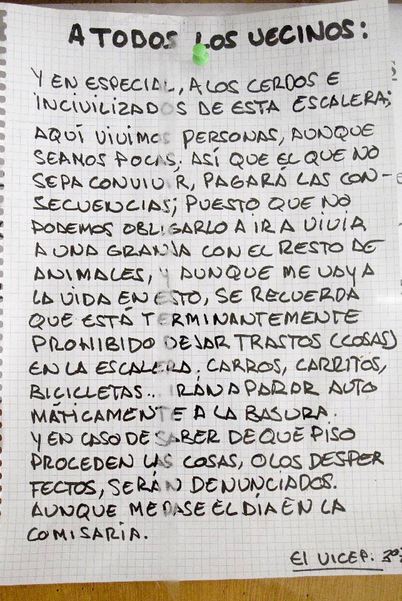 A TODOS LOS VECINOS:
Y EN ESPECIAL, A LOS CERDOS E
INCIVILIZADOS DE ESTA ESCALERA;
AQUÍ VIVIMOS PERSONAS, AUNQUE
SEAMOS POCAS; ASÍ QUE EL QUE NO
SEPA CONVIVIR, PAGARÁ LAS CON-
SECUENCIAS; PUESTO QUE NO
PODEMOS OBLIGARLO A IR A VIVIR
A UNA GRANJA CON EL RESTO DE
ANIMALES, Y AUNQUE ME VAYA
LA VIDA EN ESTO, SE RECUERDA
QUE ESTÁ TERMINANTEMENTE
PROHIBIDO DEJAR TRASTOS (COSAS)
EN LA ESCALERA; CARROS, CARRITOS,
BICICLETAS... IRÁN A PARAR AUTO
MÁTICAMENTE A LA BASURA.
Y EN CASO DE SABER DE QUE PISO
PROCEDEN LAS COSAS, O LOS DESPER
FECTOS, SERÁN DENUNCIADOS.
AUNQUE ME PASE EL DÍA EN LA
COMISARIA.
El VICEP. 3º